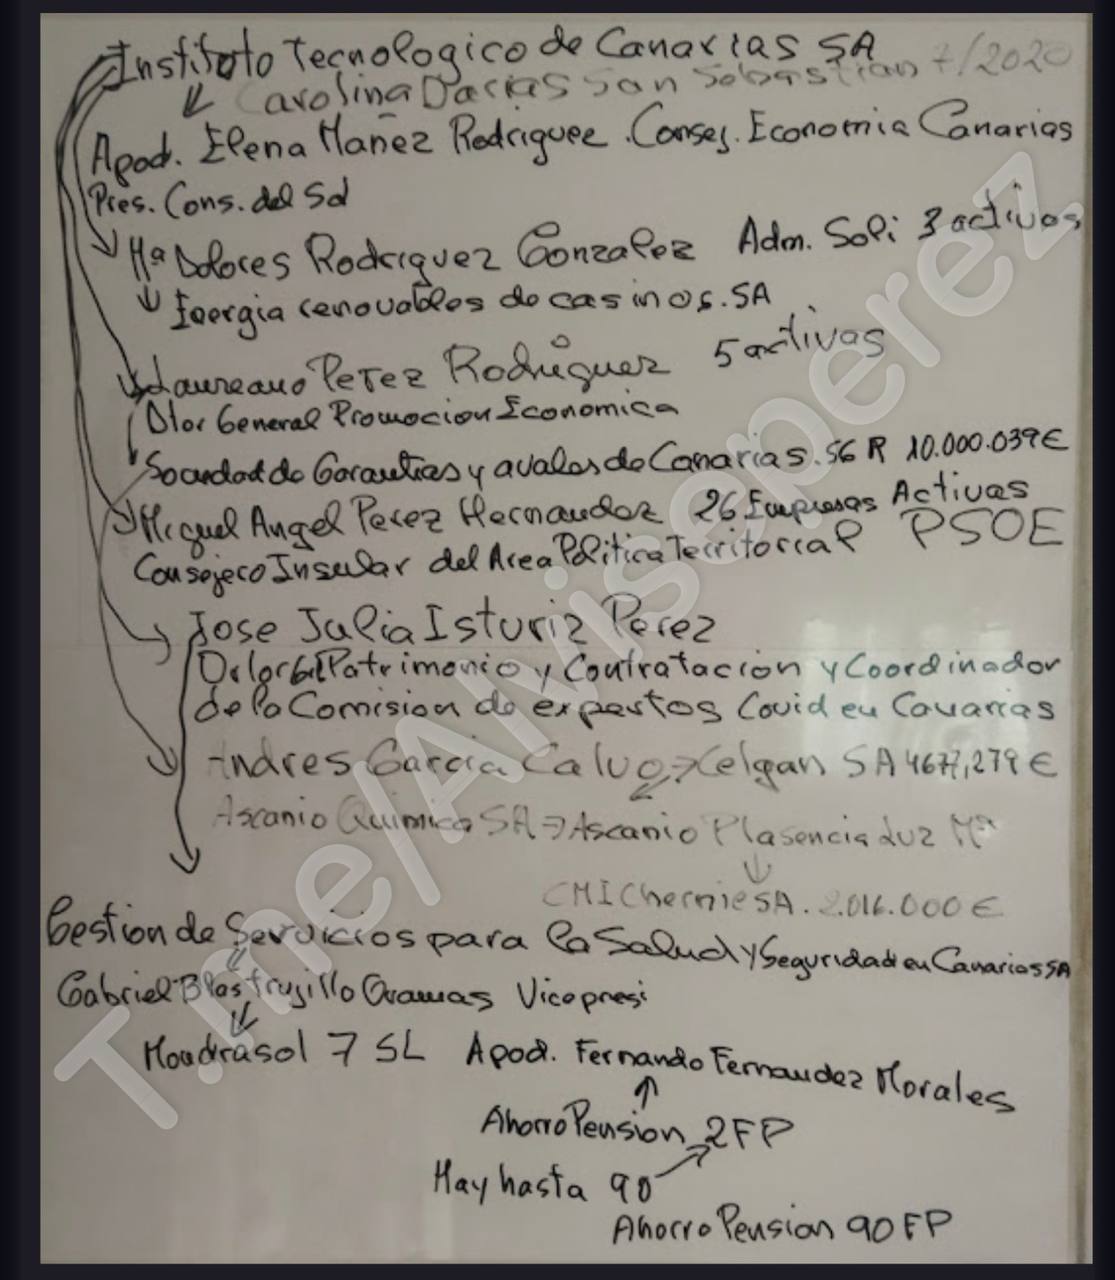 Instituto Tecnologico de Canarias SA
Carolina Darias San Sebastian 7/2020
Apod. Elena Mañez Rodriguez. Consej. Economia Canarias
Pres. Cons. del Sd
Mª Dolores Rodriguez Gonzalez Adm. Soli 3 activas
Energia renovables de casinos. SA
Laureano Perez Rodriguez 5 activas
Dtor General Promocion Economica
Sociedad de Garantias y avales de Canarias. SGR 10.000.039€
Miguel Angel Perez Hernandez 26 Empresas Activas
Consejero Insular del Area Politica Territorial PSOE
Jose Julia Isturiz Perez
Dtor Gral Patrimonio y Contratacion y Coordinador
de la Comision de expertos Covid en Canarias
Andres Garcia Calvo → Celgan SA 4677,279€
Ascanio Quimica SA → Ascanio Plasencia Luz Mª
CMI Chernie SA. 2.016.000€
Gestion de Servicios para la Salud y Seguridad en Canarias SA
Gabriel Blas Trujillo Oramas Vicepresi
Moudrasol 7 SL Apod. Fernando Fernandez Morales
Ahorro Pension 2FP
Hay hasta 90
Ahorro Pension 90 FP
T.me/Alviseperez